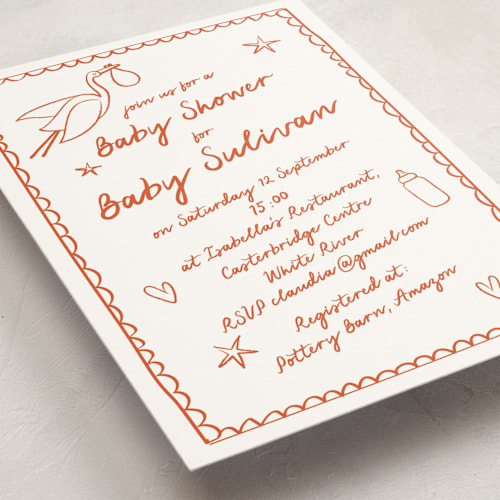 join us for a
Baby Shower
for
Baby Sulivan
on Saturday 12 September
15:00
at Isabella's Restaurant,
Casterbridge Centre
White River
RSVP claudia@gmail.com
Registered at:
Pottery Barn, Amazon